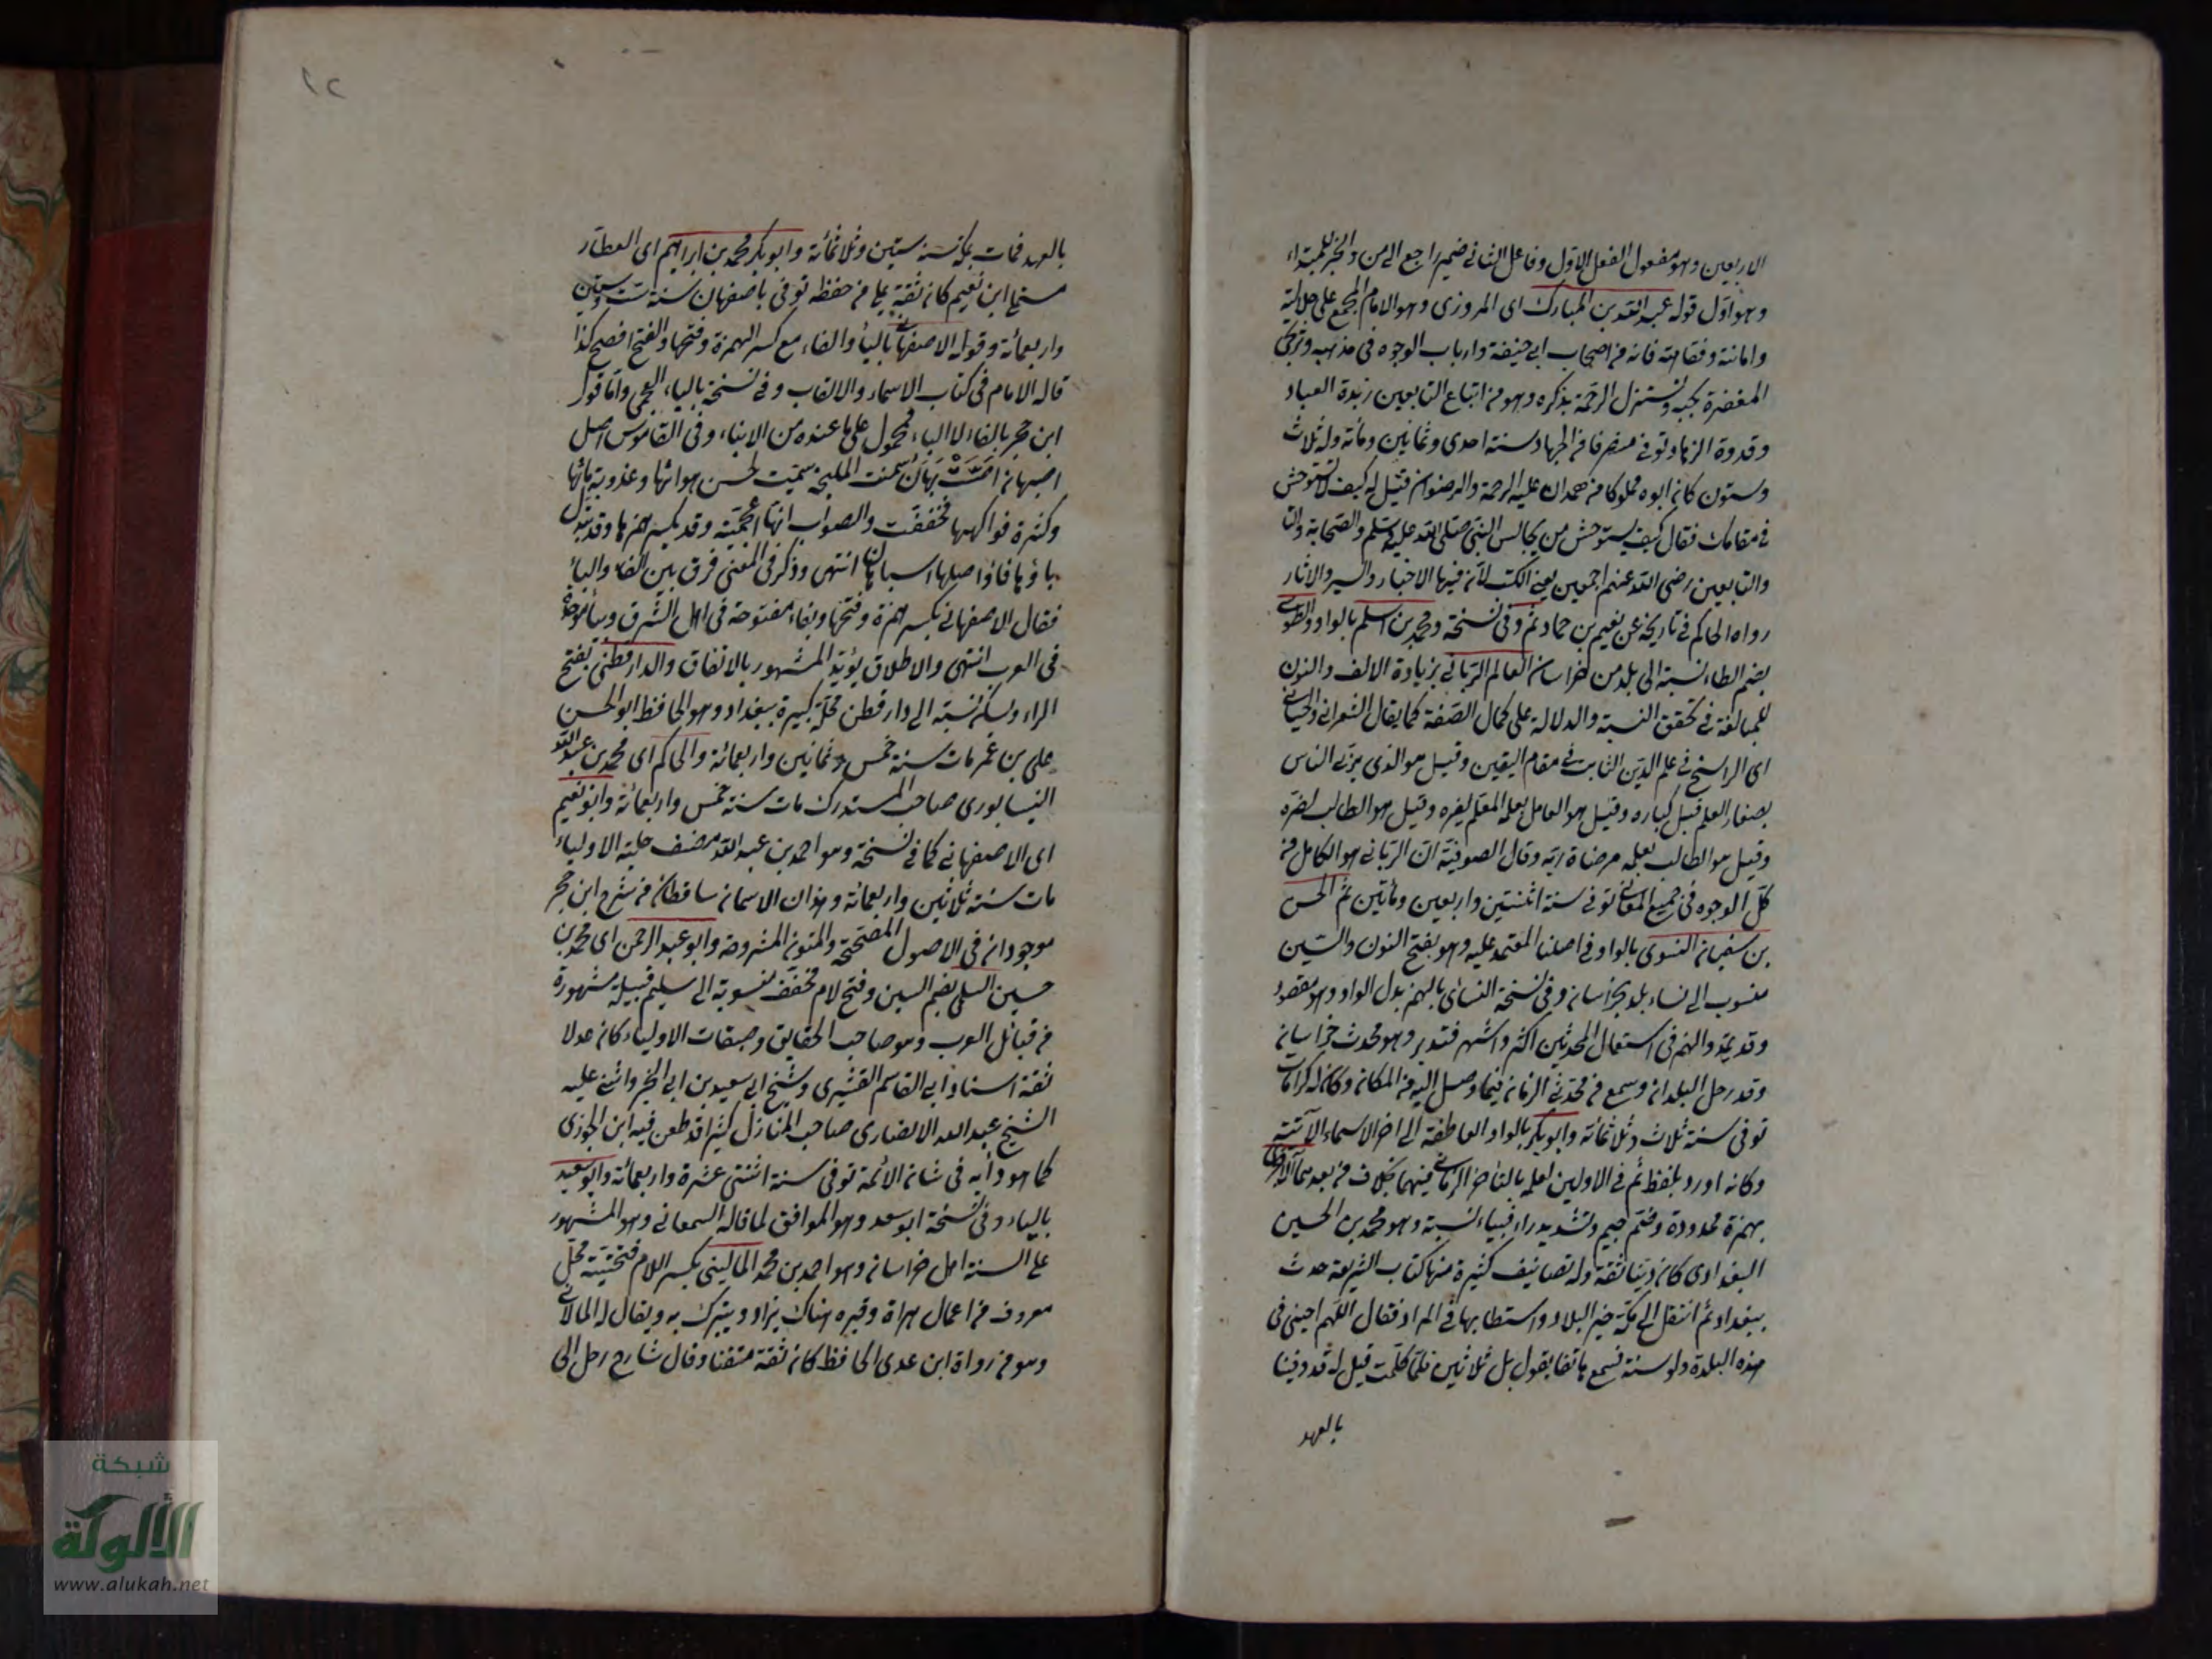 الاربعين وهو مفعول الفعل الاول وفاعل الثاني ضمير راجع الى من والخبر للمبتداء
وهو اول قوله عبد الله بن المبارك اى المروزى وهو الامام المجمع على جلالته
وامانته وفقاهته فانه من اصحاب ابى حنيفة وارباب الوجوه فى مذهبه وترتجى
المغفرة بحبه وتستنزل الرحمة بذكره وهو من اتباع التابعين زبدة العباد
وقدوة الزهاد توفى منصرفا من الجهاد سنة احدى وثمانين ومائة وله ثلاث
وستون كان ابوه مملوكا من همدان عليه الرحمة والرضوان قيل له كيف لا تستوحش
فى مقامك فقال كيف يستوحش من يجالس النبى صلى الله عليه وسلم والصحابة والتا
والتابعين رضى الله عنهم اجمعين يعنى الكتب لان فيها الاخبار والسير والاثار
رواه الحاكم فى تاريخه عن نعيم بن حماد ثم وفى نسخة ومحمد بن اسلم بالواو والطوسى
بضم الطاء نسبة الى بلد من خراسان العالم الربانى بزيادة الالف والنون
للمبالغة فى تحقق النسبة والدلالة على كمال الصفة كما يقال الشعرانى واللحيانى
اى الراسخ فى علم الدين الثابت فى مقام اليقين وقيل هو الذى يربى الناس
بصغار العلم قبل كباره وقيل هو العامل بعلمه المعلم لغيره وقيل هو الطالب
وقيل هو الطالب بعلمه مرضاة ربه وقال الصوفية ان الربانى هو الكامل من
كل الوجوه فى جميع المعانى توفى سنة اثنتين واربعين ومأتين ثم الحسن
بن سفيان النسوى بالواو فى اصلنا المعتمد عليه وهو بفتح النون والسين
منسوب الى نساء بلد بخراسان وفى نسخة النسائى بالهمز بدل الواو وهو مقصور
وقد يمد والهمز فى استعمال المحدثين اكثر واشهر فتدبر وهو محدث خراسان
وقد رحل البلدان وسمع من محدثى الزمان فيما وصل اليه من المكان وكان له كرامات
توفى سنة ثلاث وثلاثمائة وابو بكر بالواو العاطفة الى اخر الاسماء الآتية
وكانه اورد بلفظ ثم فى الاولين لعلمه بالتاخر الزمانى فيهما بخلاف من بعدهما الآجرى
بهمزة ممدودة وضم جيم وتشديد راء فياء نسبة وهو محمد بن الحسين
البغدادى كان دينا ثقة وله تصانيف كثيرة منها كتاب الشريعة حدث
ببغداد ثم انتقل الى مكة خير البلاد واستطابها فى المراد فقال اللهم احينى فى
هذه البلدة ولو سنة فسمع هاتفا يقول بل ثلاثين فلما كملت قيل له قد وفينا
بالعهد
١٢
بالعهد فمات بمكة سنة ستين وثلاثمائة وابو بكر محمد بن ابراهيم اى العطار
مستملى ابى نعيم كان ثقة يملى من حفظه توفى باصفهان سنة ست وستين
واربعمائة وقوله الاصفهانى بالباء والفاء مع كسر الهمزة وفتحها والفتح افصح كذا
قاله الامام فى كتاب الاسماء والالقاب وفى نسخة بالباء العجمى واما قول
ابن حجر بالفاء لا الباء فمحمول على ما عنده من الانباء وفى القاموس اصل
اصبهان اصت بهان سمنت المليحة سميت لحسن هوائها وعذوبة مائها
وكثرة فواكهها فخففت والصواب انها اعجمية وقد يكسر همزها وقد تبدل
باؤها فاء واصلها اسباهان انتهى وذكر فى المغنى فرق بين الفاء والباء
فقال الاصفهانى بكسر همزة وفتحها وبفاء مفتوحة فى اهل الشرق وبباء موحدة
فى الغرب انتهى والاطلاق يؤيد المشهور بالاتفاق والدارقطنى بفتح
الراء وتسكن نسبة الى دار قطن محلة كبيرة ببغداد وهو الحافظ ابو الحسن
على بن عمر مات سنة خمس وثمانين واربعمائة والحاكم اى محمد بن عبد الله
النيسابورى صاحب المستدرك مات سنة خمس واربعمائة وابو نعيم
اى الاصفهانى كما فى نسخة وهو احمد بن عبد الله مصنف حلية الاولياء
مات سنة ثلاثين واربعمائة وهذان الاسمان ساقطان من شرح ابن حجر
موجودان فى الاصول المصححة والمتون المشروحة وابو عبد الرحمن اى محمد بن
حسين السلمى بضم السين وفتح لام مخفف منسوبة الى سليم قبيلة مشهورة
من قبائل العرب وهو صاحب الحقايق وطبقات الاولياء كان عدلا
ثقة استاذ ابى القاسم القشيرى وشيخ ابى سعيد بن ابى الخير واثنى عليه
الشيخ عبد الله الانصارى صاحب المنازل كثيرا قد طعن فيه ابن الجوزى
كما هو دأبه فى شان الائمة توفى سنة اثنتى عشرة واربعمائة وابو سعيد
بالياء وفى نسخة ابو سعد وهو الموافق لما قاله السمعانى وهو المشهور
على السنة اهل خراسان وهو احمد بن محمد المالينى بكسر اللام فتحتية محل
معروف من اعمال هراة وقبره هناك يزار ويتبرك به ويقال له المالانى
وهو من رواة ابن عدى الحافظ كان ثقة متقنا وقال شارح رحل الى
شبكة
الألوكة
www.alukah.net